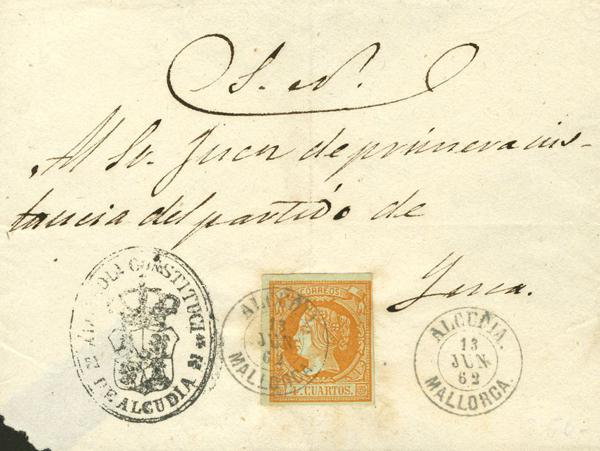 S. N.
Al Sr. Juez de primera ins-
tancia del partido de
Inca.
ALCALDIA CONSTITUCI
DE ALCUDIA
CORREOS
4 CUARTOS.
ALCUDIA
13
JUN
62
MALLORCA
ALCUDIA
13
JUN
62
MALLORCA